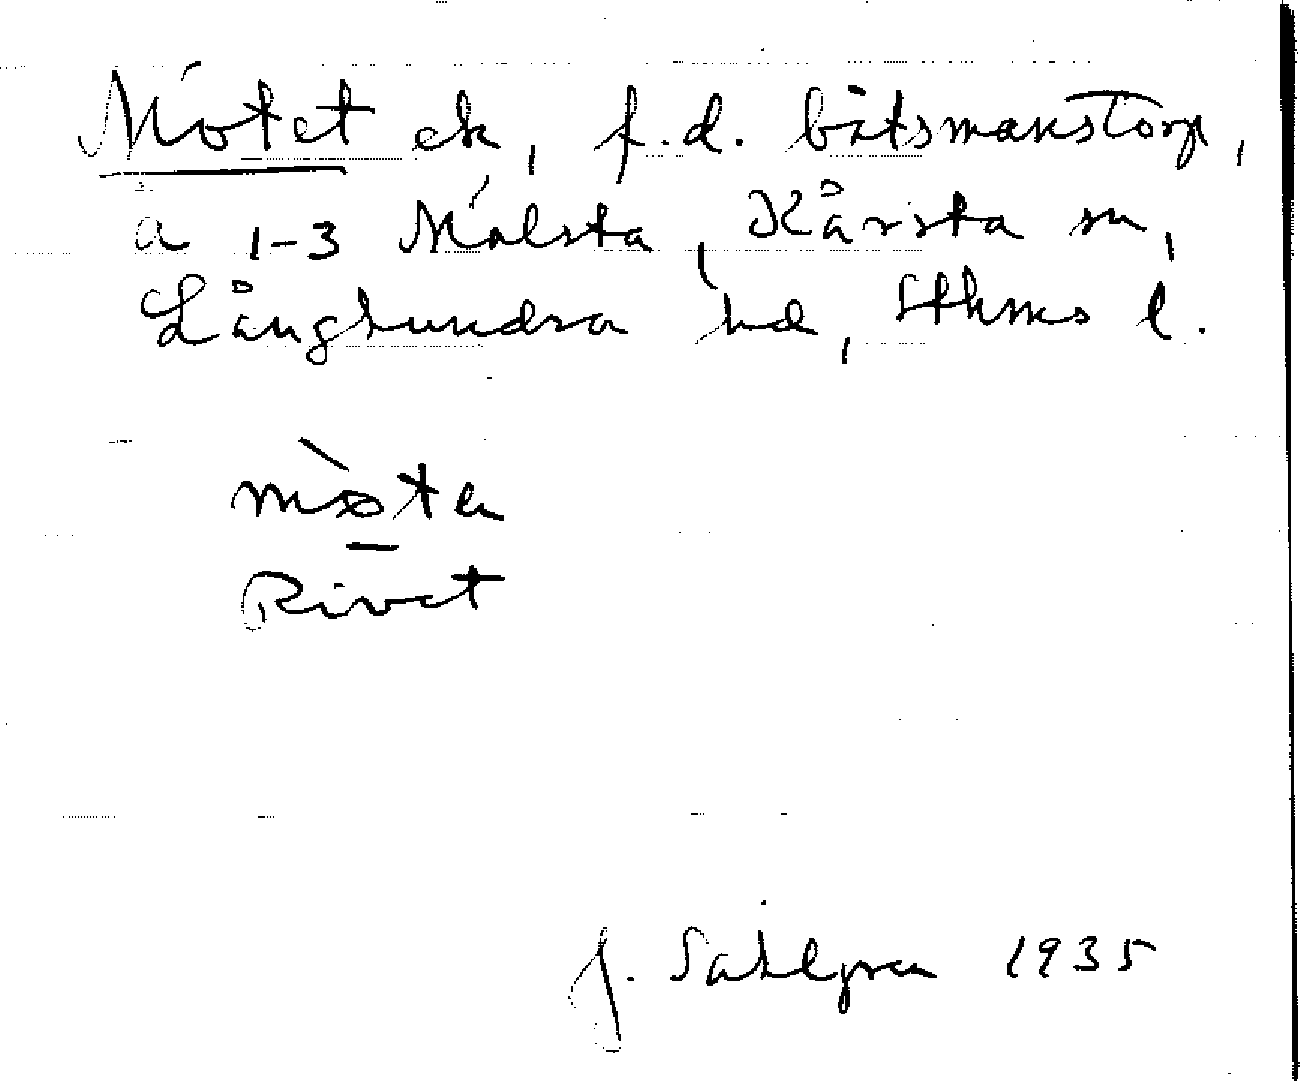 Mötet ek, f.d. båtsmanstorp,
å 1-3 Målsta, Kårsta sn,
Långhundra hd, Sthms l.
mø̀tə
Rivet
J. Sahlgren 1935